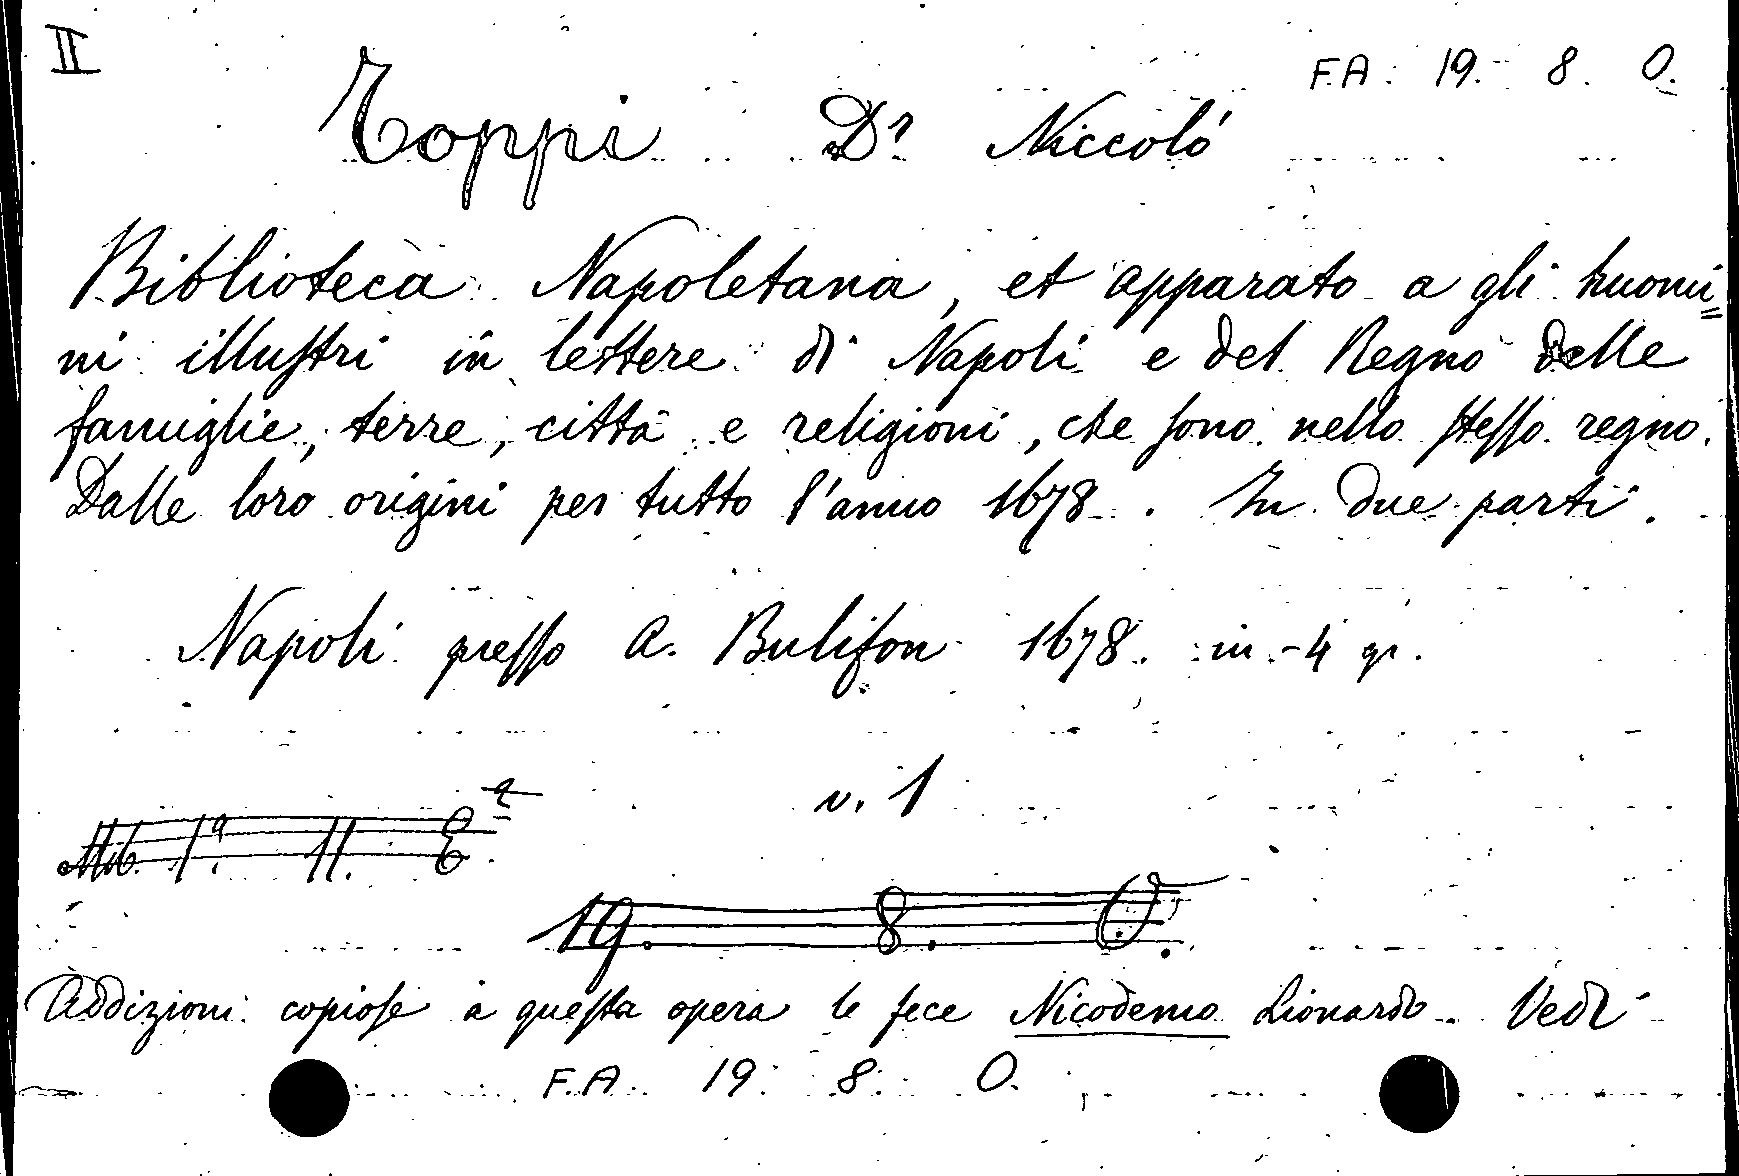 II
F.A. 19. 8. O.
Toppi Dr Niccoló
Biblioteca Napoletana, et apparato a gli huomi=
ni illustri in lettere di Napoli e del Regno delle
famiglie, terre, città e religioni, che sono nello stesso regno.
Dalle loro origini per tutto l'anno 1678. In due parti.
Napoli presso A. Bulifon 1678. in-4 gr.
v. 1
1ª. 11. E
19. 8. O.
Addizioni copiose a questa opera le fece Nicodemo Lionardo. Vedi
F.A. 19. 8. O.